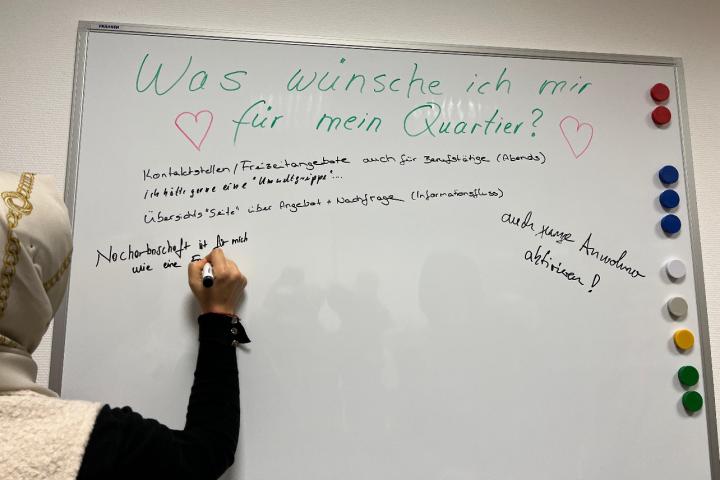 FRANKEN
Was wünsche ich mir
für mein Quartier?
Kontaktstellen/Freizeitangebote auch für Berufstätige (Abends)
ich hätte gerne eine "Umweltgruppe"...
Übersichts"seite" über Angebot + Nachfrage (Informationsfluss)
auch junge Anwohner
aktivieren!
Nacharbaschaft ist für mich
wie eine F